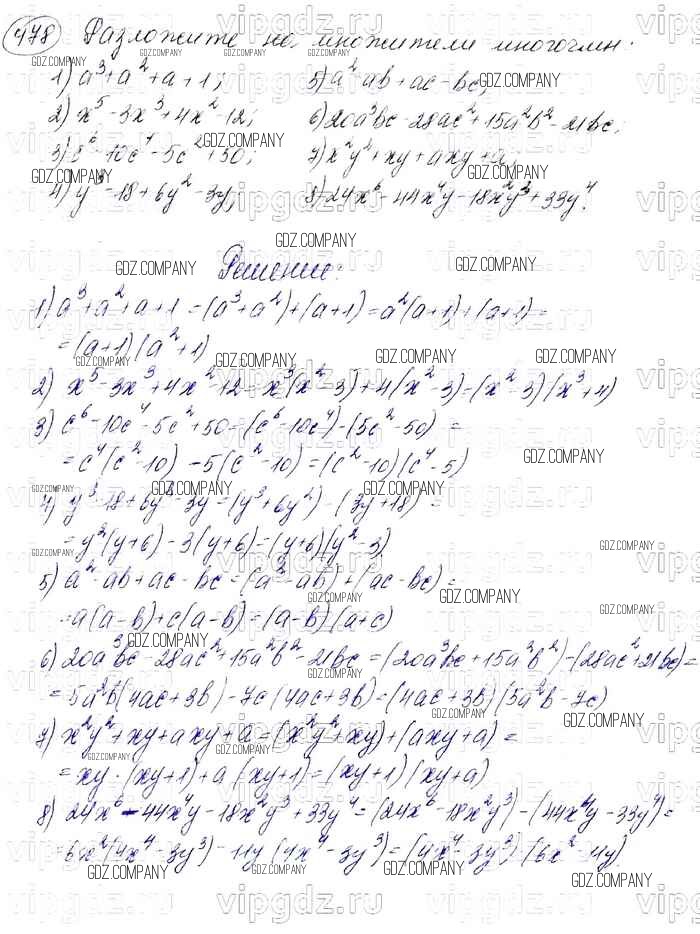 478 Разложите на множители многочлен:
1) a³+a²+a+1; 5) a²-ab+ac-bc;
2) x⁵-3x³+4x²-12; 6) 20a³bc-28ac²+15a²b²-21bc;
3) c⁶-10c⁴-5c²+50; 7) x²y²+xy+axy+a;
4) y³-18+6y²-3y; 8) 24x⁶-44x⁴y-18x²y³+33y⁴.
Решение:
1) a³+a²+a+1=(a³+a²)+(a+1)=a²(a+1)+(a+1)=
=(a+1)(a²+1)
2) x⁵-3x³+4x²-12=x³(x²-3)+4(x²-3)=(x²-3)(x³+4)
3) c⁶-10c⁴-5c²+50=(c⁶-10c⁴)-(5c²-50)=
=c⁴(c²-10)-5(c²-10)=(c²-10)(c⁴-5)
4) y³-18+6y²-3y=(y³+6y²)-(3y+18)=
=y²(y+6)-3(y+6)=(y+6)(y²-3)
5) a²-ab+ac-bc=(a²-ab)+(ac-bc)=
=a(a-b)+c(a-b)=(a-b)(a+c)
6) 20a³bc-28ac²+15a²b²-21bc=(20a³bc+15a²b²)-(28ac²+21bc)=
=5a²b(4ac+3b)-7c(4ac+3b)=(4ac+3b)(5a²b-7c)
7) x²y²+xy+axy+a=(x²y²+xy)+(axy+a)=
=xy·(xy+1)+a(xy+1)=(xy+1)(xy+a)
8) 24x⁶-44x⁴y-18x²y³+33y⁴=(24x⁶-18x²y³)-(44x⁴y-33y⁴)=
=6x²(4x⁴-3y³)-11y(4x⁴-3y³)=(4x⁴-3y³)(6x²-11y)